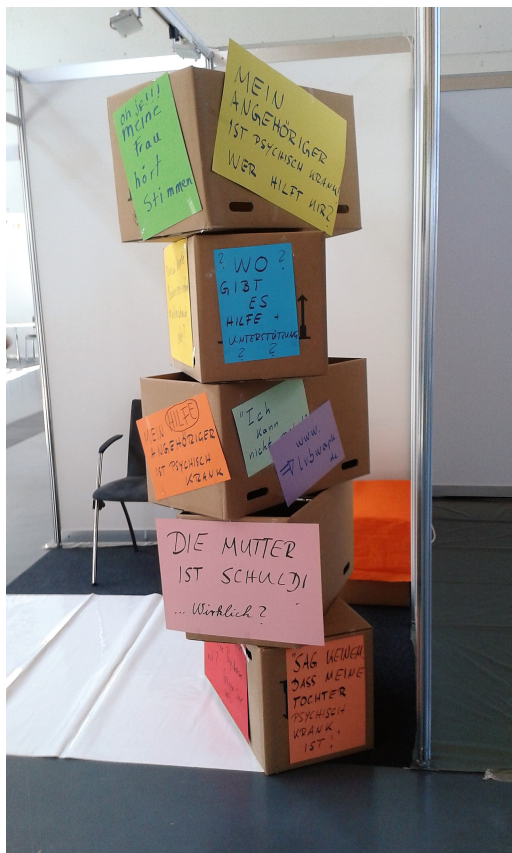 oh je!!!
meine
Frau
hört
Stimmen
MEIN
ANGEHÖRIGER
IST PSYCHISCH KRANK
WER HILFT MIR?
? WO ?
GIBT
ES
HILFE +
UNTERSTÜTZUNG
? ?
MEIN HILFE
ANGEHÖRIGER
IST PSYCHISCH
KRANK
"Ich
kann
nicht
www.
lvbwapk
de
DIE MUTTER
IST SCHULD!
... Wirklich?
"SAG KEINEM
DASS MEINE
TOCHTER
PSYCHISCH
KRANK
IST!"